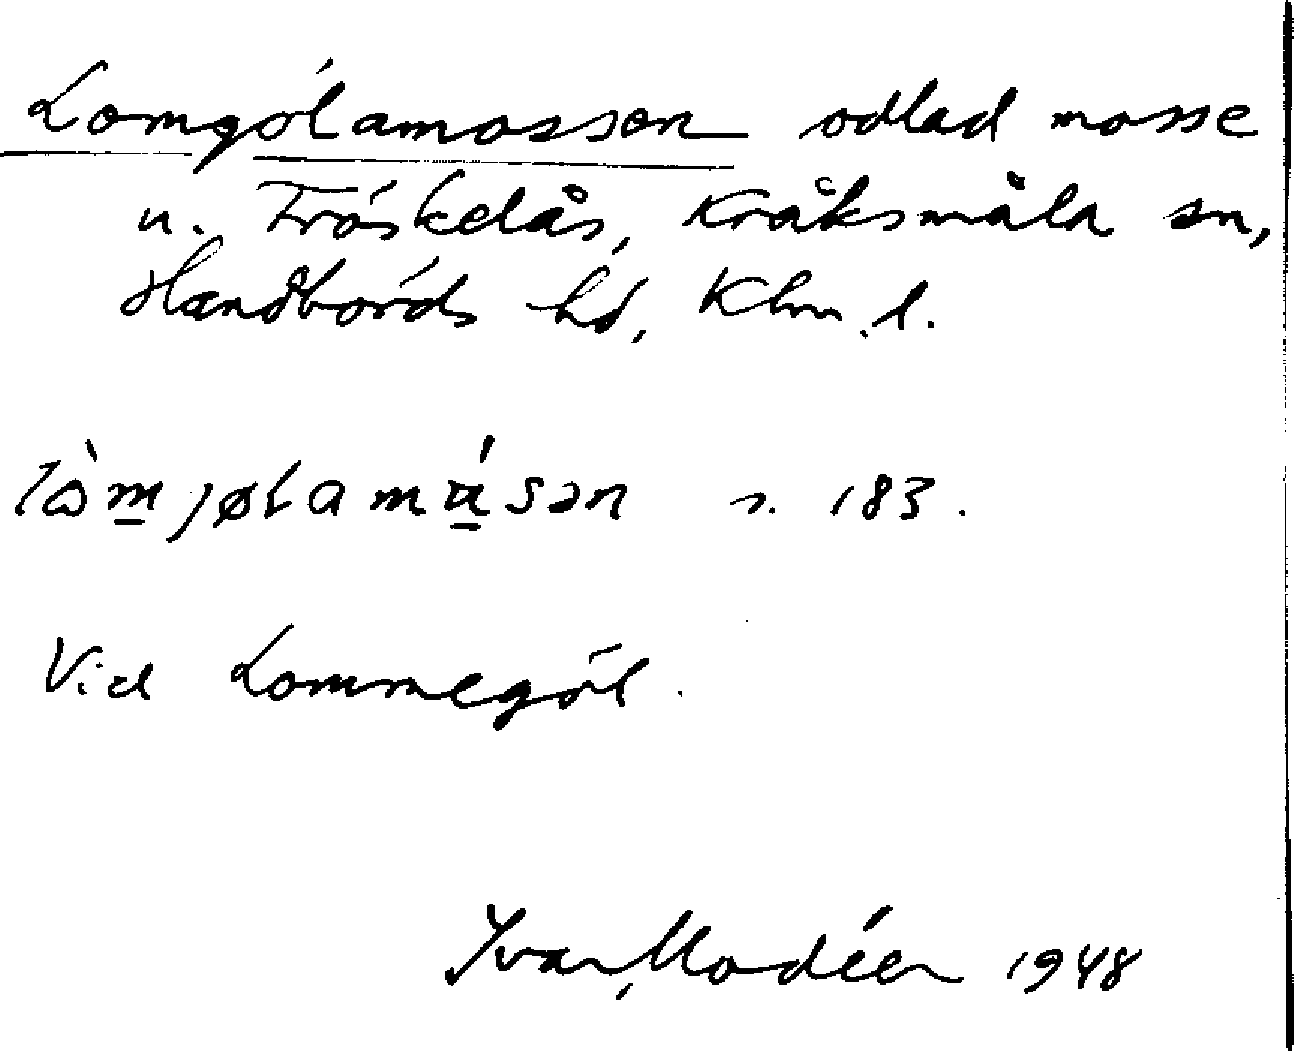 Lomgölamossen odlad mosse
u. Fröskelås, Kråksmåla sn,
Handbörds hd, Klm. l.
s. 183.
Vid Lommegöl.
Ivar Modéer 1948